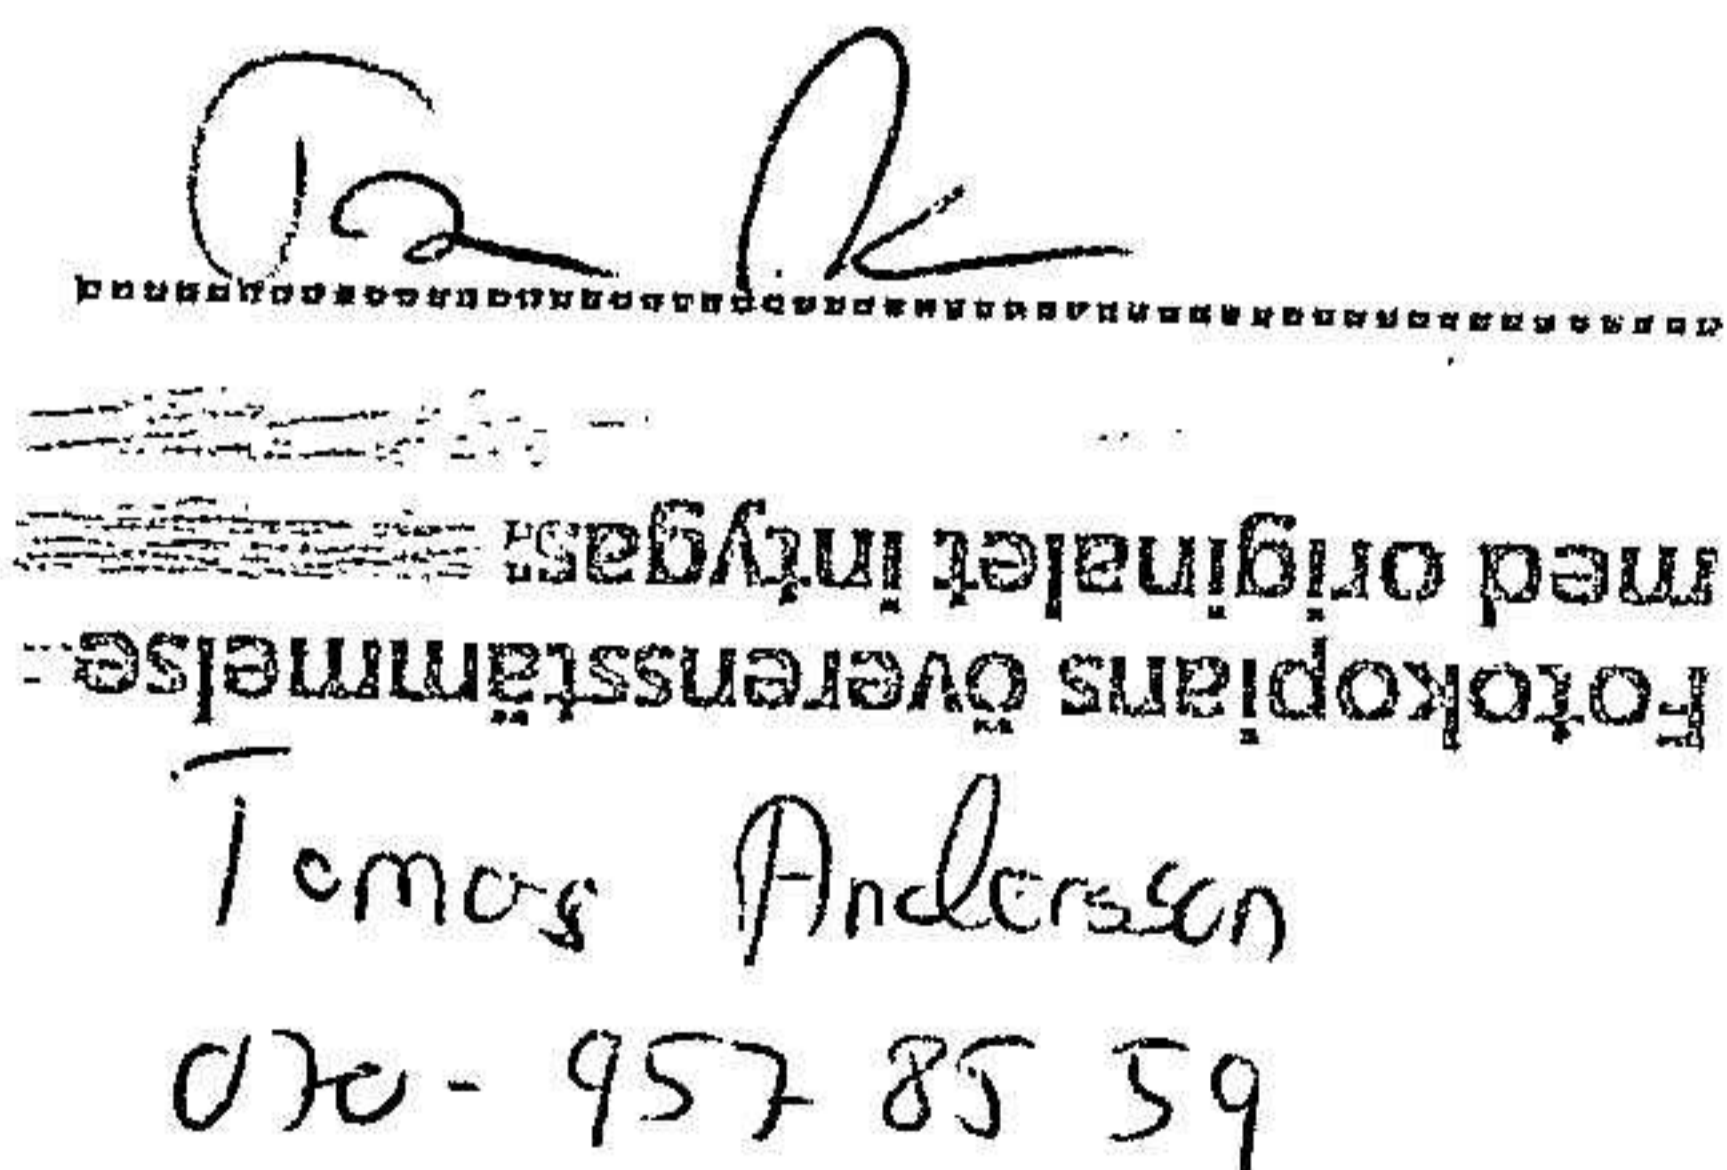 Fotokopians överensstämmelse
med originalet intygas:
Tomas Andersson
070 - 957 85 59